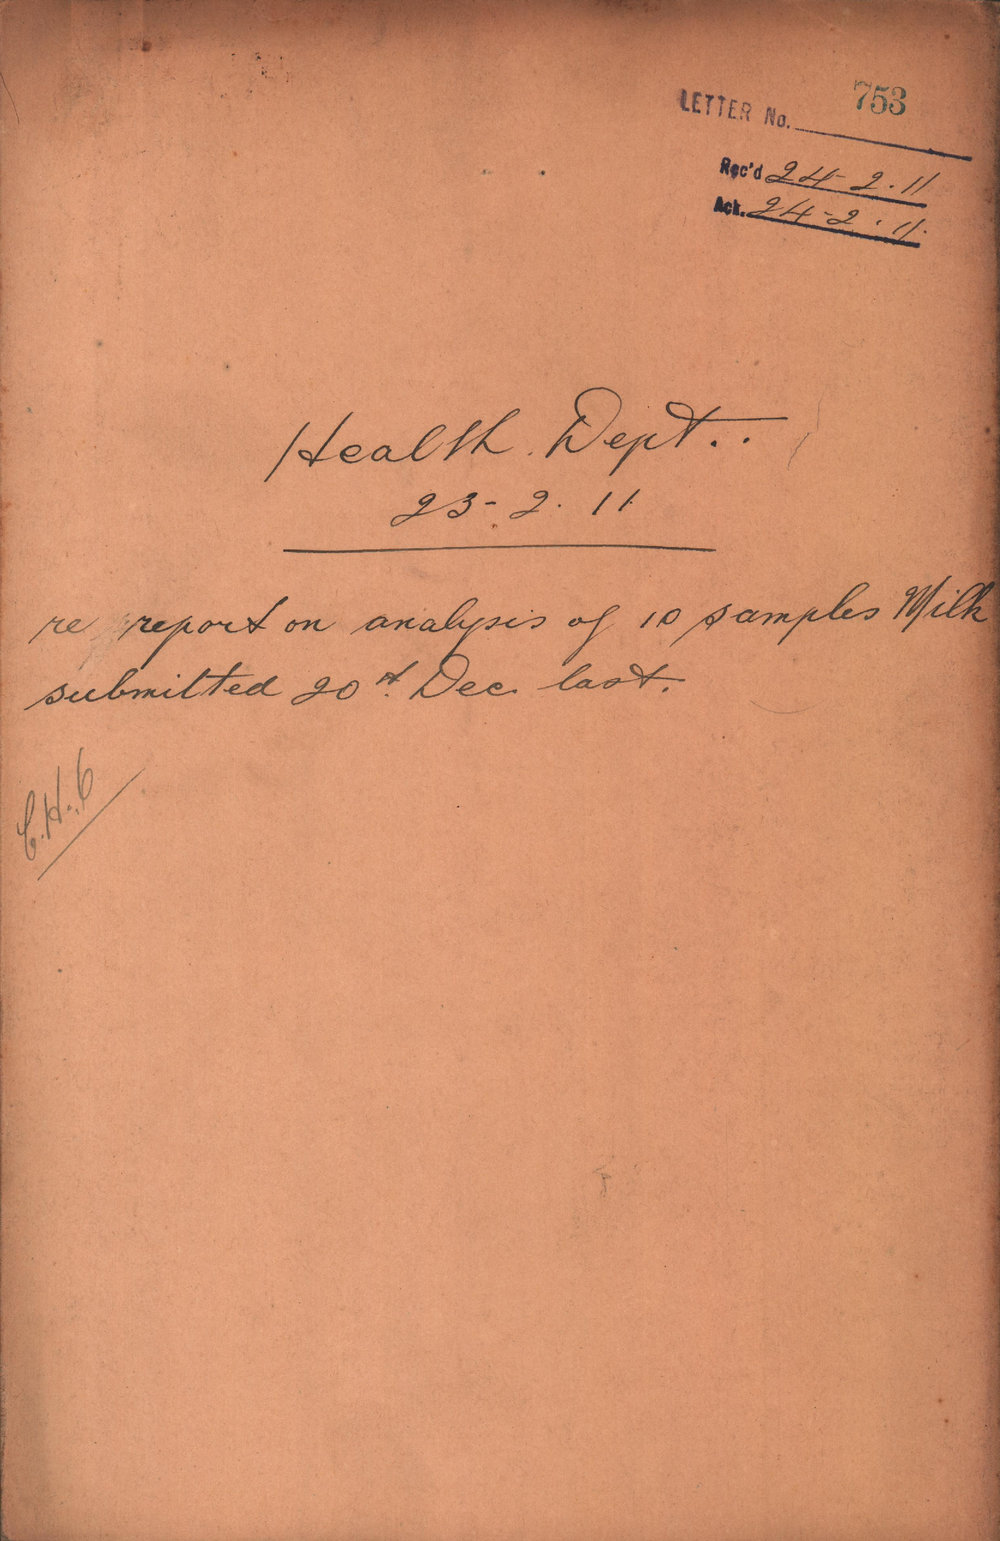 LETTER No. 753
Rec'd 24-2.11
Ack. 24-2.11.
Health Dept..
23-2.11
re report on analysis of 10 samples Milk
submitted 20th. Dec. last.